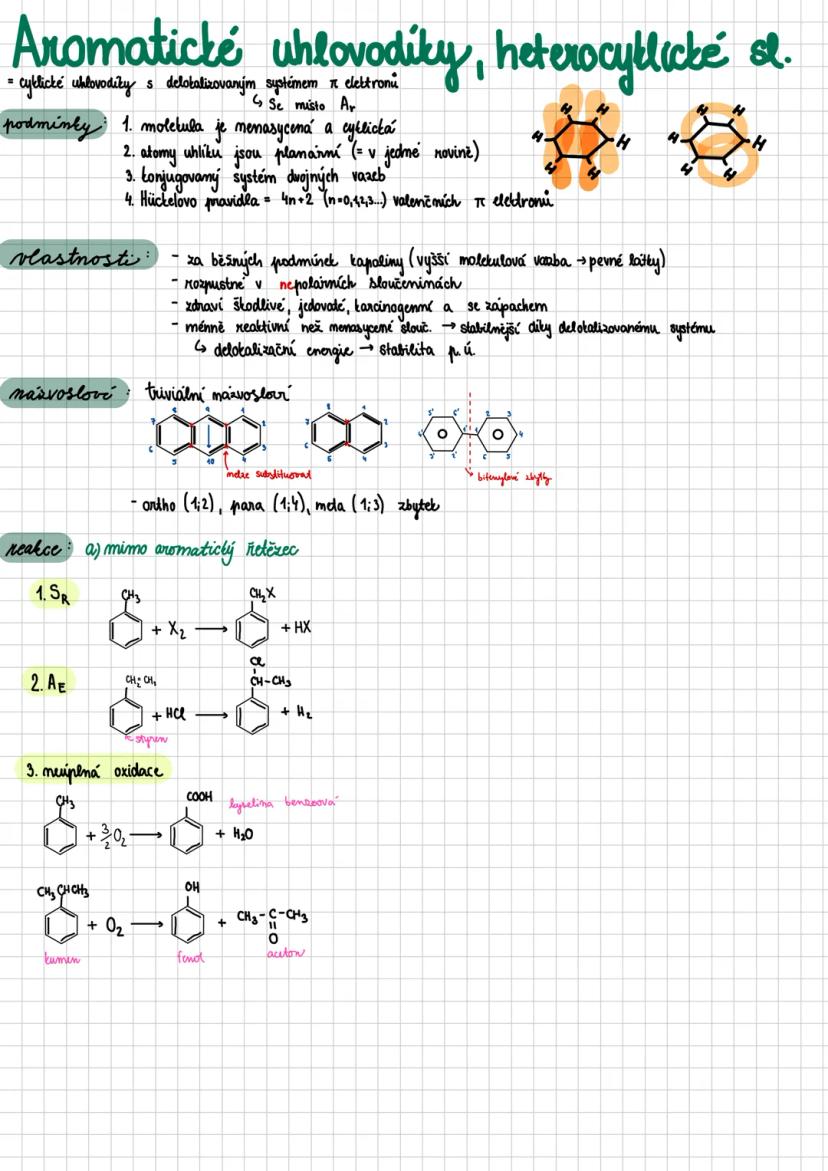 Aromatické uhlovodíky, heterocyklické sl.
= cyklické uhlovodíky s delokalizovaným systémem π elektronů
↳ Se místo Ar
podmínky: 1. molekula je nenasycená a cyklická
2. atomy uhlíku jsou planární (= v jedné rovině)
3. konjugovaný systém dvojných vazeb
4. Hückelovo pravidlo = 4n+2 (n=0,1,2,3...) valenčních π elektronů
H H H H H H
H H H H H H
vlastnosti: - za běžných podmínek kapaliny (vyšší molekulová vazba → pevné látky)
- rozpustné v nepolárních sloučeninách
- zdraví škodlivé, jedovaté, karcinogenní a se zápachem
- méně reaktivní než nenasycené slouč. → stabilnější díky delokalizovanému systému
↳ delokalizační energie → stabilita p. ú.
názvosloví: triviální názvosloví
8 9 1 2 3 4 10 5 6 7
8 1 2 3 4 5 6 7
nelze substituovat
bifenylové zbytky
- ortho (1;2), para (1;4), meta (1;3) zbytek
reakce: a) mimo aromatický řetězec
1. SR
CH3 + X2 → CH2X + HX
2. AE
CH=CH2 + HCl → Cl CH-CH3 + H2
styren
3. neúplná oxidace
CH3 + 3/2 O2 → COOH + H2O
kyselina benzoová
CH3CHCH3 + O2 → OH + CH3-C-CH3
O
kumen fenol aceton